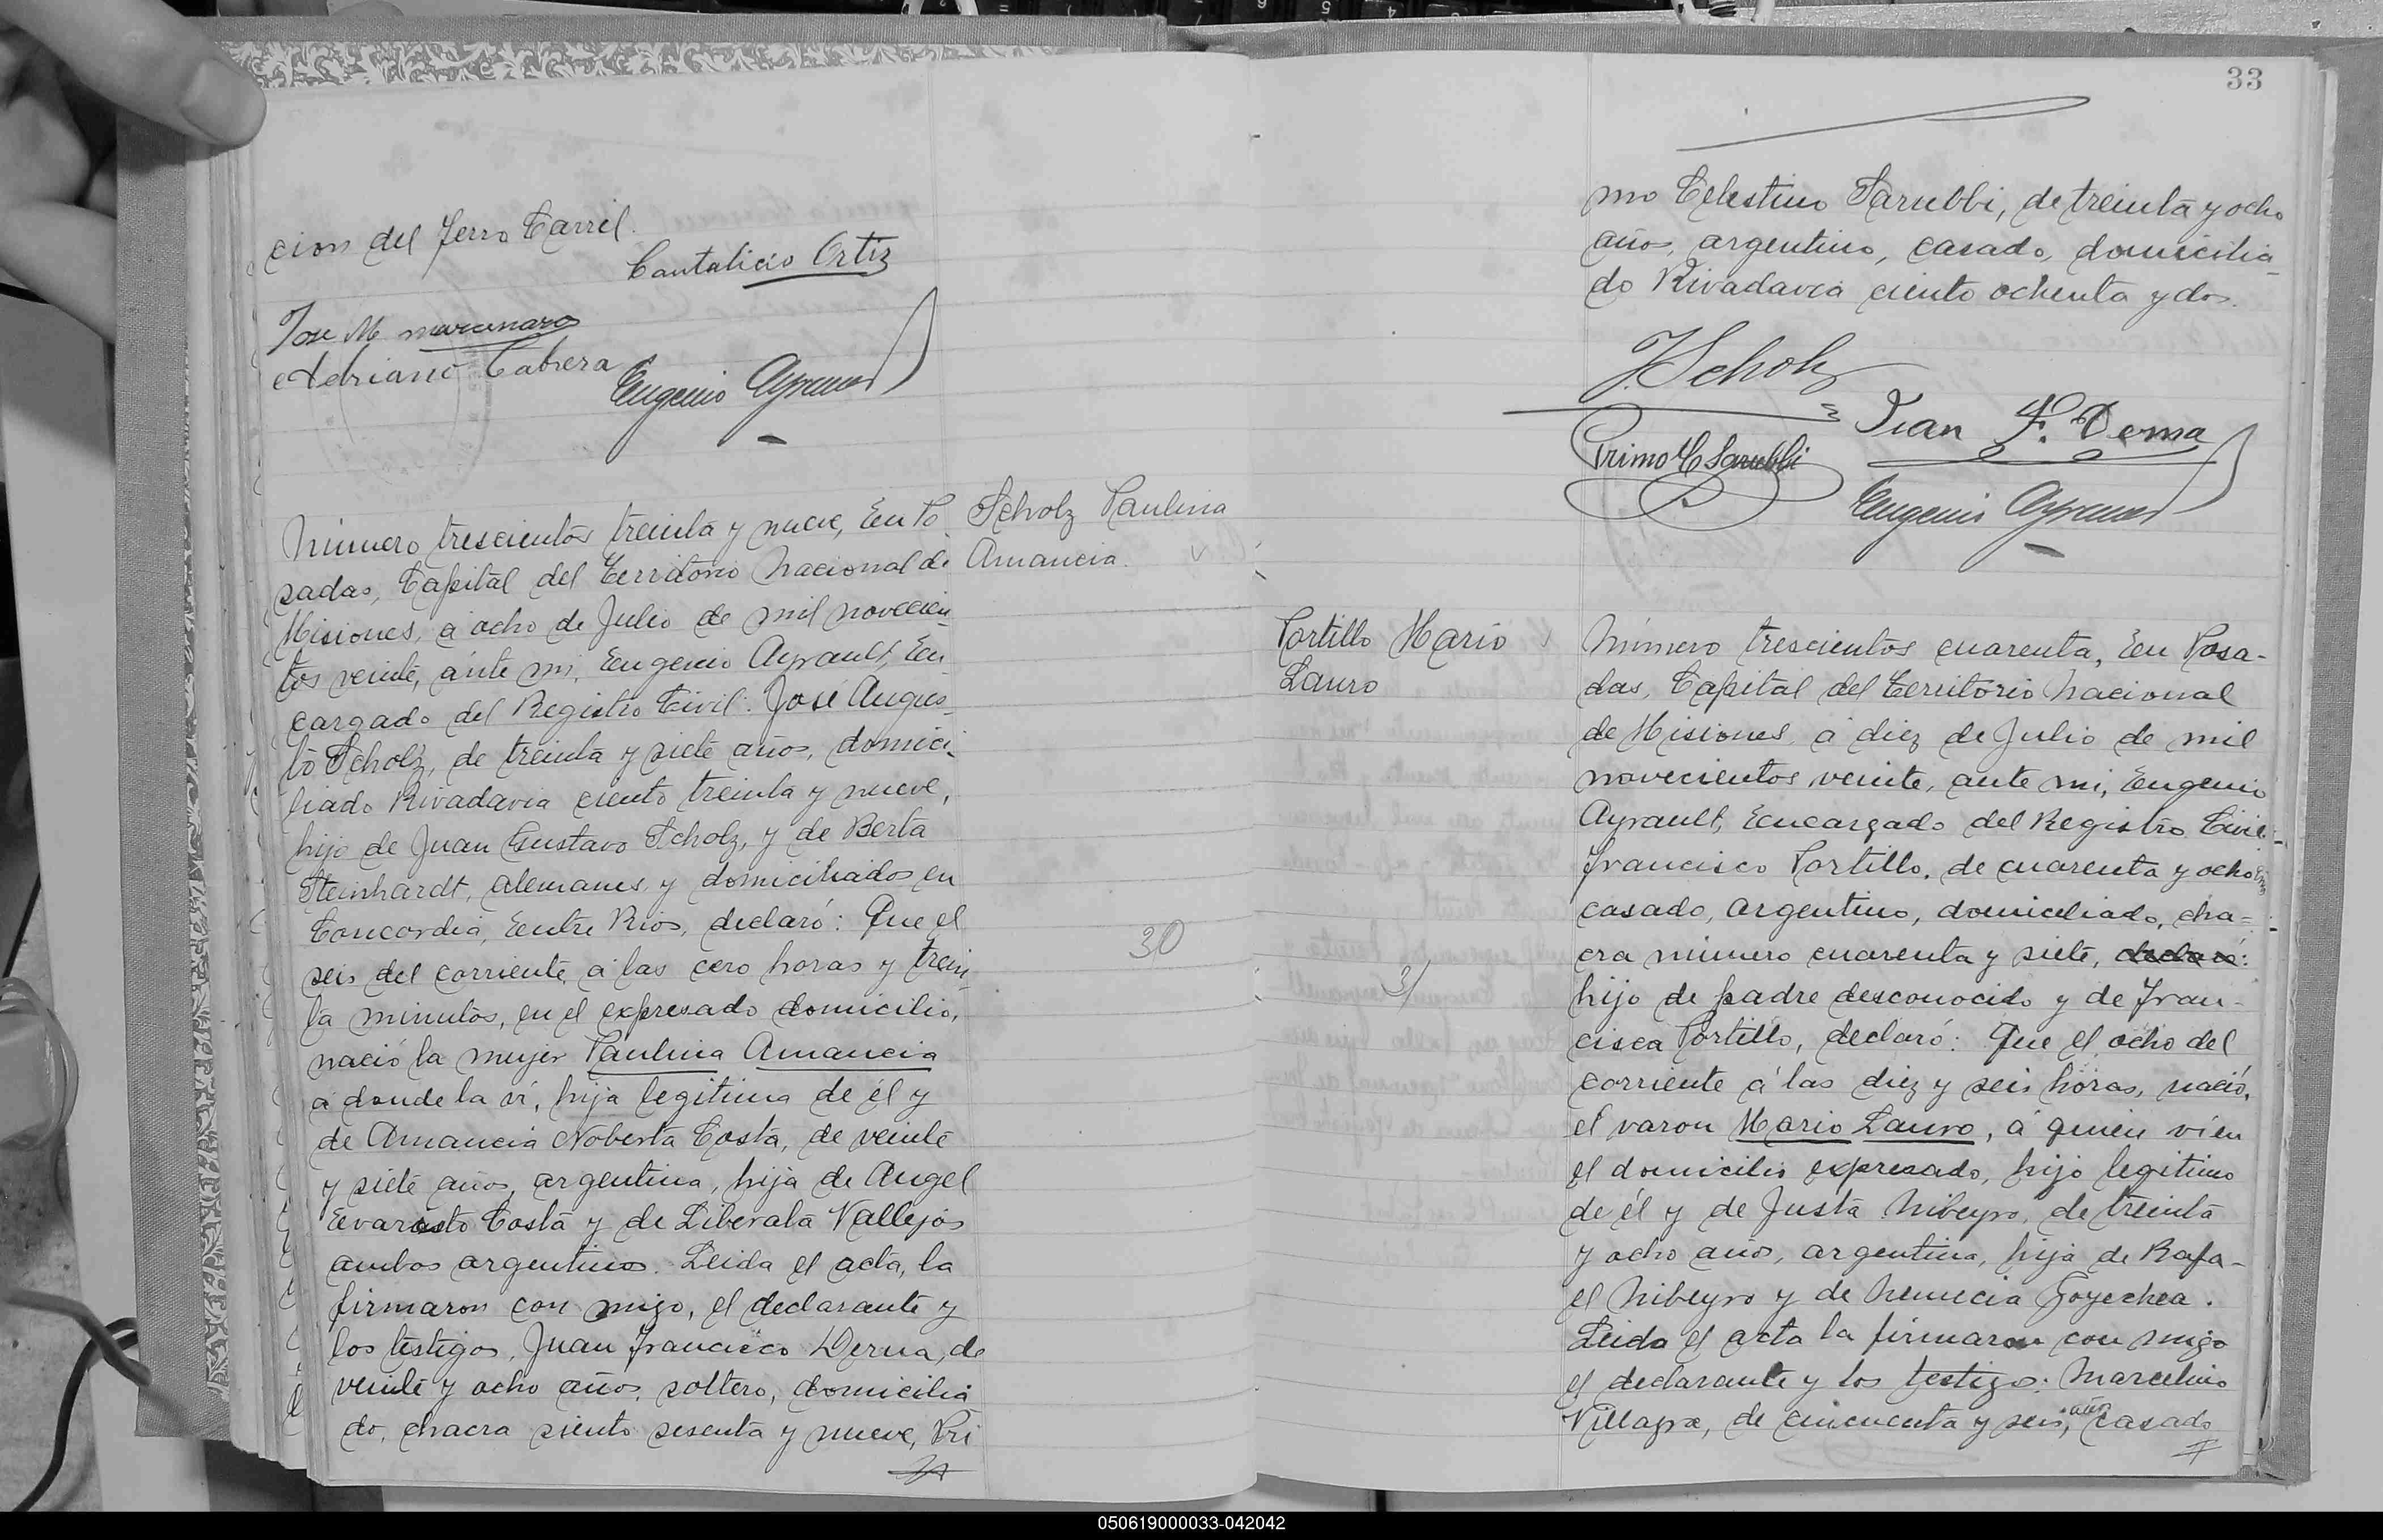 cion del ferro Carril.
Cantalicio Ortiz
Jose M marcenaro
Adriano Cabrera
Eugenio Ayrault
Número trescientos treinta y nueve, En Po
sadas, Capital del Territorio Nacional de
Misiones, á ocho de Julio de mil novecien
tos veinte, ánte mi, Eugenio Ayrault, En
cargado del Registro Civil: José Augus
to Scholz, de treinta y siete años, domici
liado Rivadavia ciento treinta y nueve,
hijo de Juan Gustavo Scholz, y de Berta
Steinhardt, alemanes y domiciliados en
Concordia, Entre Rios, declaró: Que el
seis del corriente, á las cero horas y trein
ta minutos, en el expresado domicilio,
nació la mujer Paulina Amancia
á donde la ví, hija legitima de él y
de Amancia Noberta Costa, de veinte
y siete años, argentina, hija de Angel
Evaristo Costa y de Liberata Vallejos
ambos argentinos. Leida el acta, la
firmaron con migo, el declarante y
los testigos, Juan Francisco Derna, de
veinte y ocho años, soltero, domicilia
do, chacra siento sesenta y nueve, Pri
Scholz Paulina
Amancia.
30
33
mo Celestino Sarubbi, de treinta y ocho
años, argentino, casado, domicilia
do Rivadavia ciento ochenta y dos.
J Scholz
Juan F. Derna
Primo C Sarubbi
Eugenio Ayrault
Portillo Mario
Lauro
31
Número trescientos cuarenta, En Posa-
das, Capital del Territorio Nacional
de Misiones, á diez de Julio de mil
novecientos veinte, ante mi, Eugenio
Ayrault, Encargado del Registro Civil:
Francisco Portillo, de cuarenta y ocho
casado, argentino, domiciliado, cha=
cra número cuarenta y siete, declaró:
hijo de padre desconocido y de Fran-
cisca Portillo, declaró: Que el ocho del
corriente á las diez y seis horas, nació,
el varon Mario Lauro, á quien ví en
el domicilio expresado, hijo legitimo
de él y de Justa Nibeyro, de treinta
y ocho años, argentina, hija de Rafa-
el Nibeyro y de Nemecia Goyechea.
Leida el acta la firmaron con migo
el declarante y los testigo: Marcelino
Villagra, de cincuenta y seis, años casado
050619000033-042042